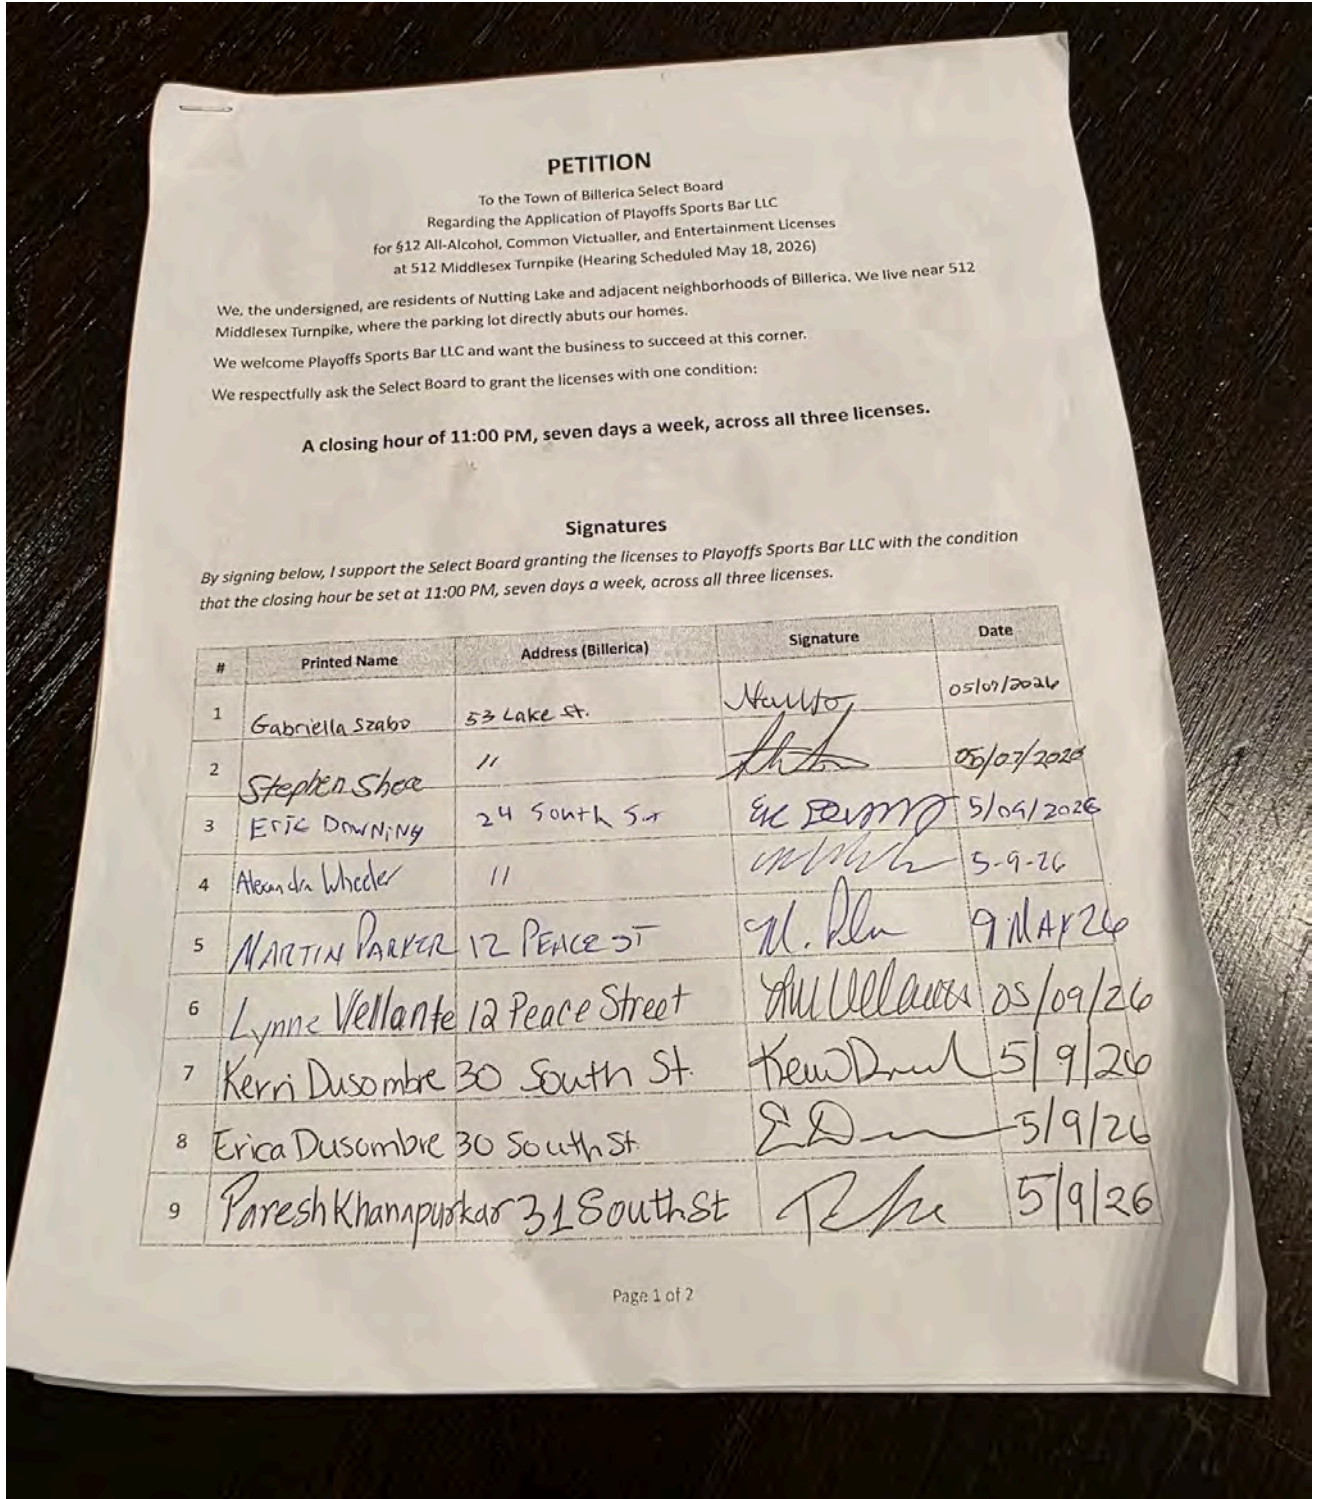 PETITION
To the Town of Billerica Select Board
Regarding the Application of Playoffs Sports Bar LLC
for §12 All-Alcohol, Common Victualler, and Entertainment Licenses
at 512 Middlesex Turnpike (Hearing Scheduled May 18, 2026)
We, the undersigned, are residents of Nutting Lake and adjacent neighborhoods of Billerica. We live near 512
Middlesex Turnpike, where the parking lot directly abuts our homes.
We welcome Playoffs Sports Bar LLC and want the business to succeed at this corner.
We respectfully ask the Select Board to grant the licenses with one condition:
A closing hour of 11:00 PM, seven days a week, across all three licenses.
Signatures
By signing below, I support the Select Board granting the licenses to Playoffs Sports Bar LLC with the condition
that the closing hour be set at 11:00 PM, seven days a week, across all three licenses.
# Printed Name Address (Billerica) Signature Date
1 Gabriella Szabo 53 Lake St. 05/07/2026
2 Stephen 〃 05/07/2026
3 Eric Downing 24 South St Eric Downing 5/09/2026
4 Alexandra Wheeler 〃 5-9-26
5 MARTIN PARKER 12 PEACE ST 9 MAY 26
6 Lynne Vellante 12 Peace Street 05/09/26
7 Kerri Dusombre 30 South St. 5/9/26
8 Erica Dusombre 30 South St. 5/9/26
9 Paresh Khanapurkar 31 South St 5/9/26
Page 1 of 2